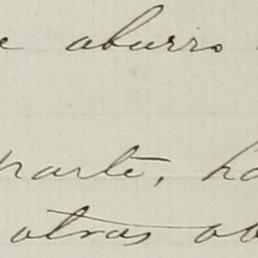 aburro
parte, ha
otras ob